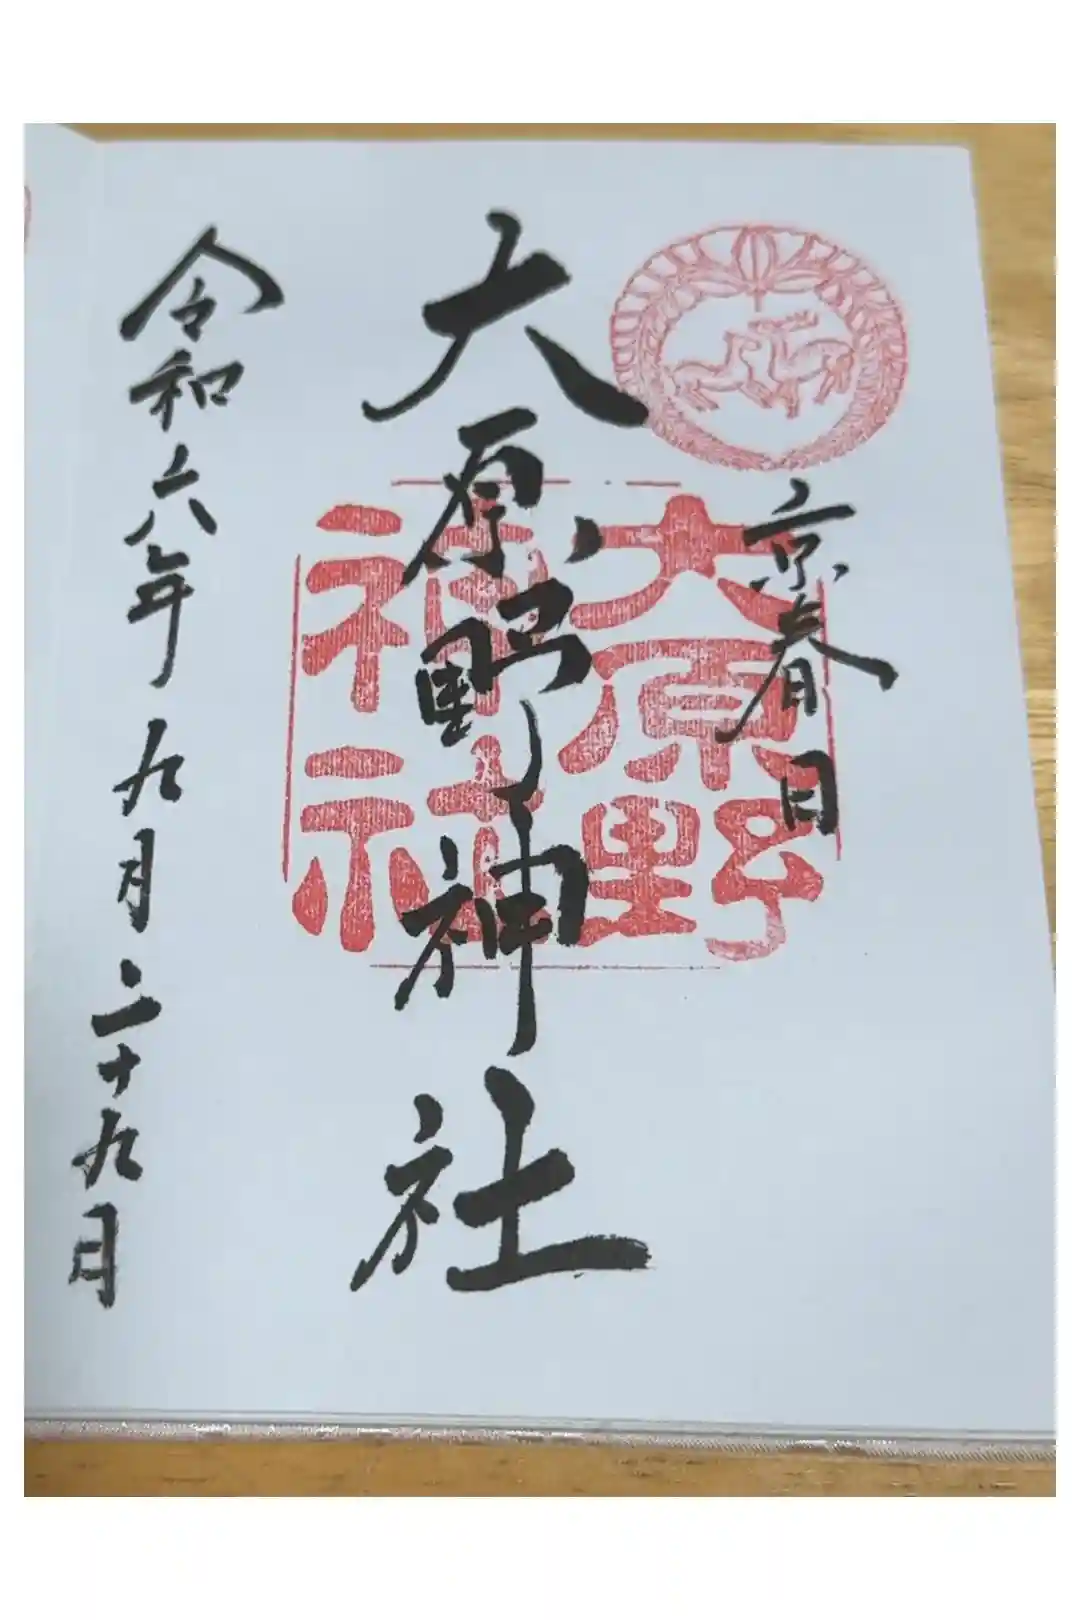 京春日
大原野神社
大原野
神社
令和六年九月二十九日